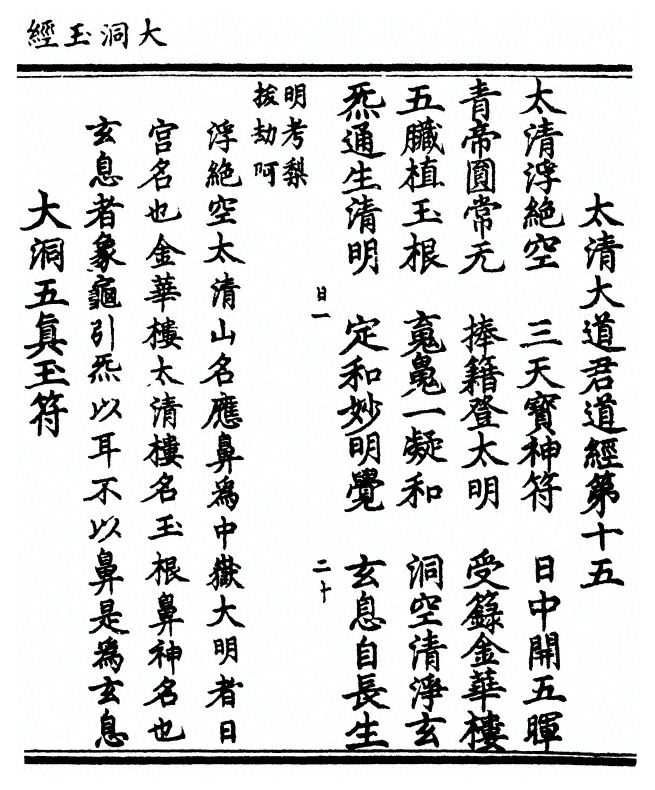 大洞玉經
太清大道君道經第十五
太清浮絕空　三天寶神符　日中開五暉
青帝圓常无　捧籍登太明　受籙金華樓
五臟植玉根　魂魄一凝和　洞空清淨玄
炁通生清明　定和妙明覺　玄息自長生
日一　二十
明考梨
拔劫呵
浮絕空太清山名應鼻為中嶽大明者日
宮名也金華樓太清樓名玉根鼻神名也
玄息者象龜引炁以耳不以鼻是為玄息
大洞五真玉符